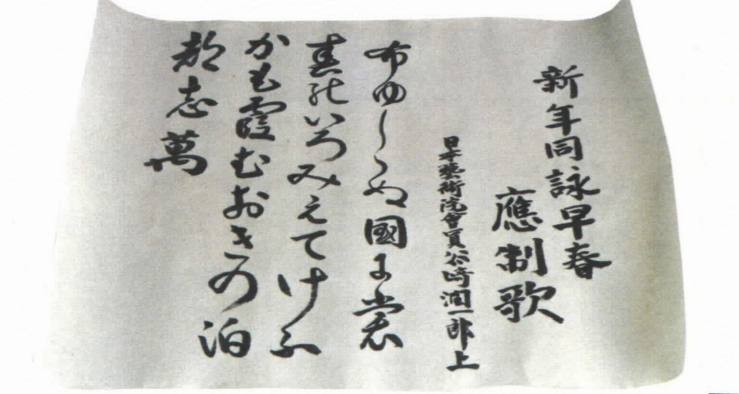 新年同詠早春
應制歌
日本藝術院會員谷崎潤一郎上
布ゆしらぬ國尓裳
春能いろみえてけふ
かも霞むおきの泊
都志萬